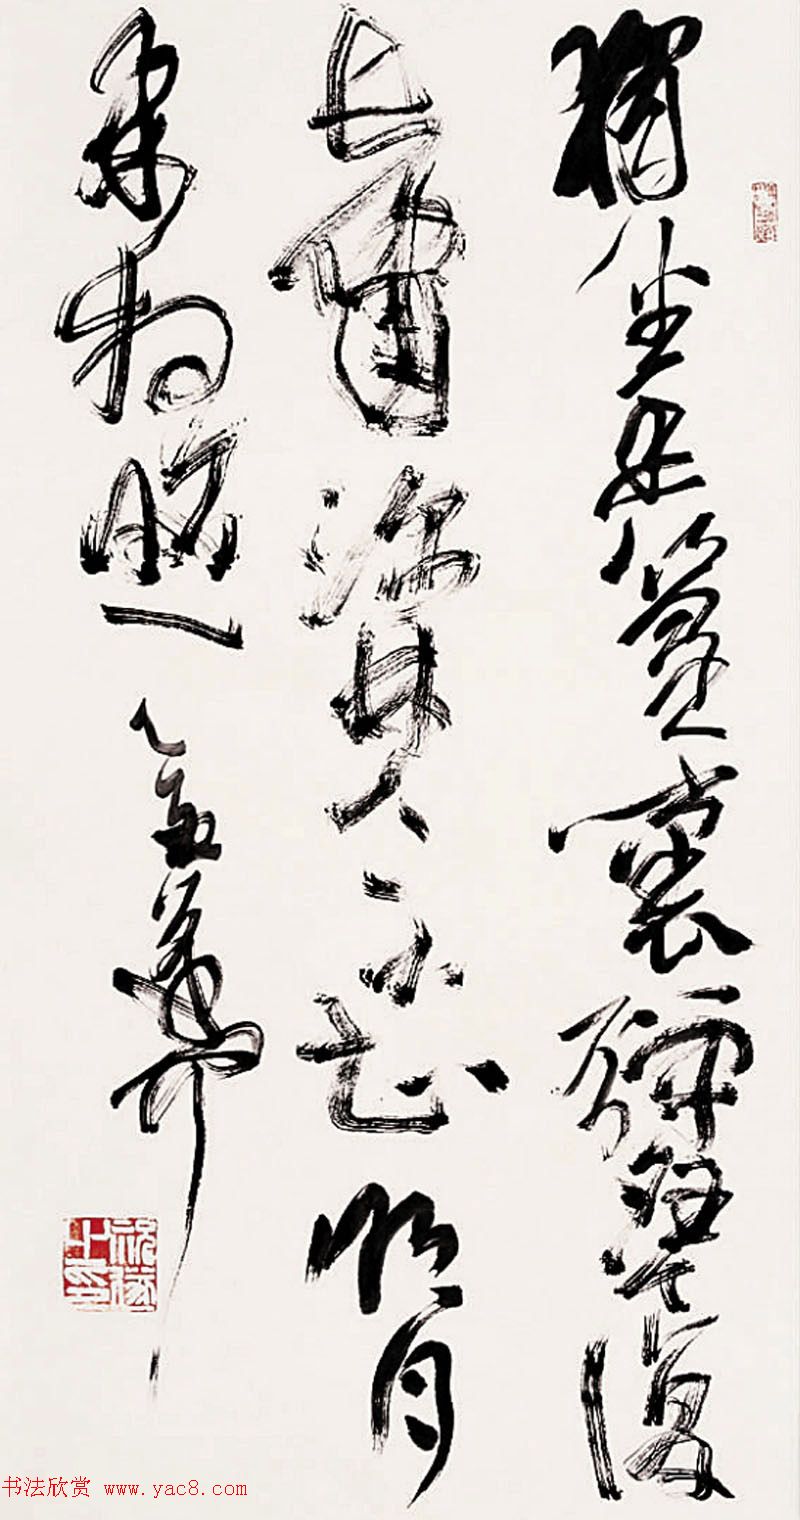 獨坐幽篁裏彈琴復
長嘯深林人不知明月
來相照
乙亥
书法欣赏 www.yac8.com